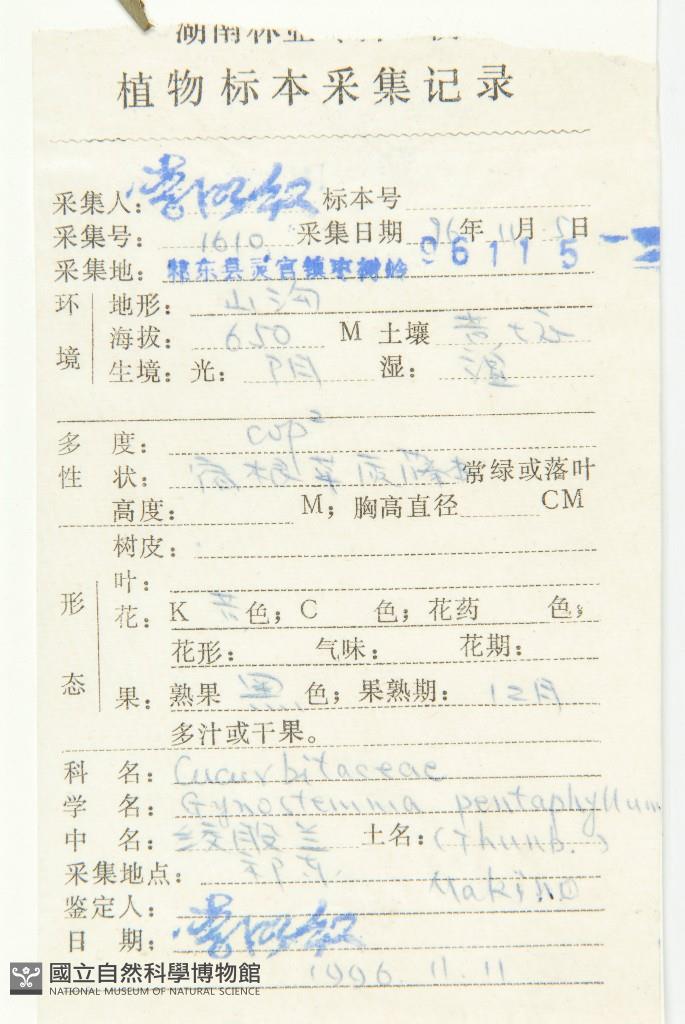 植物标本采集记录
采集人: 标本号
采集号: 1610 采集日期 96年11月5日
96 11 5
采集地: 祁东县灵官镇枣树岭
环境 地形: 山沟
海拔: 650 M 土壤
生境: 光: 阴 湿: 湿
多度: cop²
性状: 常绿或落叶
高度: M; 胸高直径 CM
树皮:
形态 叶:
花: K 色; C 色; 花药 色;
花形: 气味: 花期:
果: 熟果 黑 色; 果熟期: 12月
多汁或干果。
科名: Cucurbitaceae
学名: Gynostemma pentaphyllum
中名: 绞股兰 土名: (Thunb.)
采集地点: 祁东 Makino
鉴定人:
日期: 1996.11.11
國立自然科學博物館
NATIONAL MUSEUM OF NATURAL SCIENCE